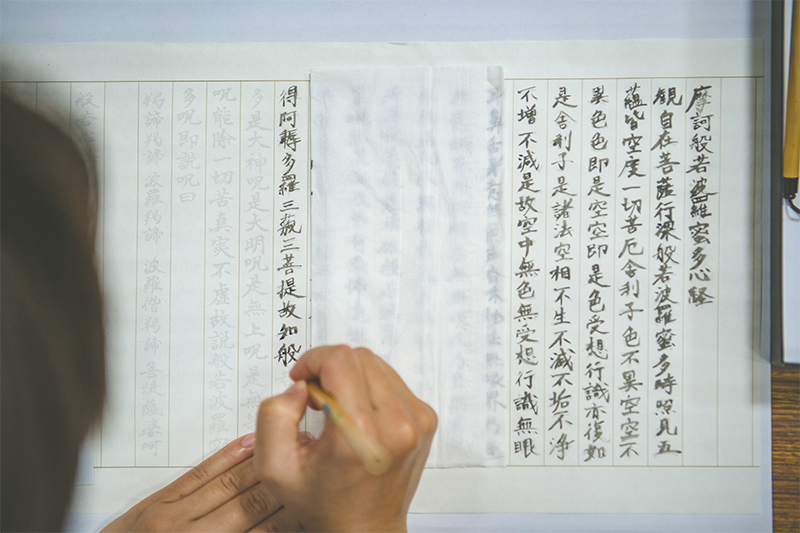 摩訶般若波羅蜜多心経
観自在菩薩行深般若波羅蜜多時照見五
蘊皆空度一切苦厄舎利子色不異空空不
異色色即是空空即是色受想行識亦復如
是舎利子是諸法空相不生不滅不垢不浄
不増不減是故空中無色無受想行識無眼
得阿耨多羅三藐三菩提故知般
多是大神呪是大明呪是無上呪是無
呪能除一切苦真実不虚故説般若波羅蜜
多呪即説呪曰
羯諦羯諦 波羅羯諦 波羅僧羯諦 菩提薩婆訶
般若